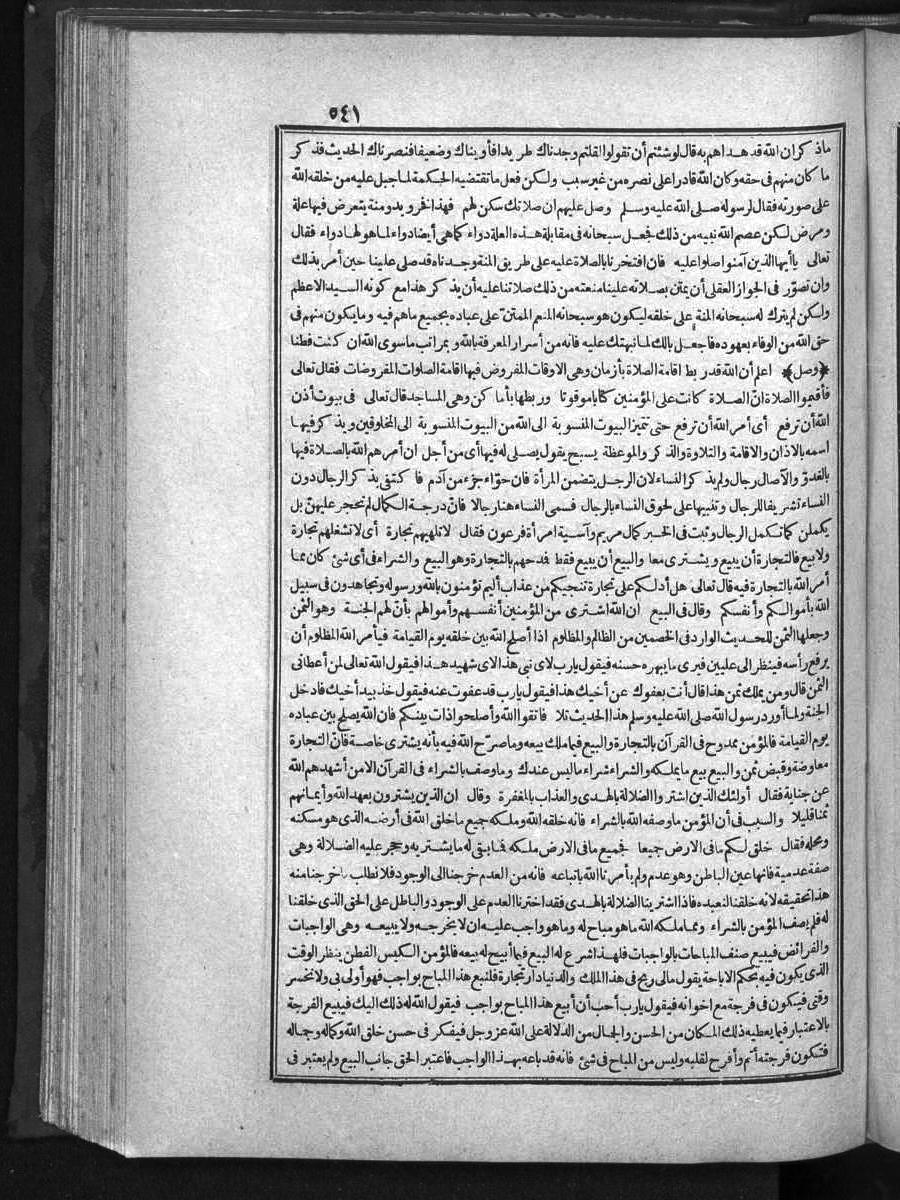 ٥٤١
ماذكر ان الله قد هداهم به قال لو شئتم أن تقولوا لقلتم وجدناك طريدا فآويناك وضعيفا فنصرناك الحديث فذكر
ما كان منهم فى حقه وكان الله قادرا على نصره من غير سبب ولكن فعل ما تقتضيه الحكمة لما جبل عليه من خلقه الله
على صورته فقال لرسوله صلى الله عليه وسلم وصل عليهم ان صلاتك سكن لهم فهذا فخر ويد ومنة يتعرض فيها علة
ومرض لكن عصم الله نبيه من ذلك فجعل سبحانه فى مقابلة هذه العلة دواء كما هى أيضا دواء لما هو لها دواء فقال
تعالى ياأيها الذين آمنوا صلوا عليه فان افتخرنا بالصلاة عليه على طريق المنة وجدناه قد صلى علينا حين أمر بذلك
وان تصوّر فى الجواز العقلى أن يمتن بصلاته علينا منعته من ذلك صلاتنا عليه أن يذكر هذا مع كونه السيد الاعظم
ولكن لم يترك له سبحانه المنة على خلقه ليكون هو سبحانه المنعم الممتن على عباده بجميع ما هم فيه وما يكون منهم فى
حق الله من الوفاء بعهوده فاجعل بالك لما نبهتك عليه فانه من أسرار المعرفة بالله وبمراتب ما سوى الله ان كنت فطنا
﴿وصل﴾ اعلم أن الله قد ربط اقامة الصلاة بأزمان وهى الاوقات المفروض فيها اقامة الصلوات المفروضات فقال تعالى
فأقيموا الصلاة انّ الصلاة كانت على المؤمنين كتابا موقوتا وربطها بأماكن وهى المساجد قال تعالى فى بيوت أذن
الله أن ترفع أى أمر الله أن ترفع حتى تتميز البيوت المنسوبة الى الله من البيوت المنسوبة الى المخلوقين ويذكر فيها
اسمه بالاذان والاقامة والتلاوة والذكر والموعظة يسبح يقول يصلى له فيها أى من أجل ان أمرهم الله بالصلاة فيها
بالغدوّ والآصال رجال ولم يذكر النساء لان الرجل يتضمن المرأة فان حوّاء جزء من آدم فاكتفى بذكر الرجال دون
النساء تشريفا للرجال وتنبيها على لحوق النساء بالرجال فسمى النساء هنا رجالا فانّ درجة الكمال لم تحجر عليهنّ بل
يكملن كما تكمل الرجال وثبت فى الخبر كمال مريم وآسية امرأة فرعون فقال لا تلهيهم تجارة أى لا تشغلهم تجارة
ولا بيع فالتجارة أن يبيع ويشترى معا والبيع أن يبيع فقط فمدحهم بالتجارة وهو البيع والشراء فى أى شئ كان مما
أمر الله بالتجارة فيه قال تعالى هل أدلكم على تجارة تنجيكم من عذاب أليم تؤمنون بالله ورسوله وتجاهدون فى سبيل
الله بأموالكم وأنفسكم وقال فى البيع ان الله اشترى من المؤمنين أنفسهم وأموالهم بأنّ لهم الجنة وهو الثمن
وجعلها الثمن للحديث الوارد فى الخصمين من الظالم والمظلوم اذا أصلح الله بين خلقه يوم القيامة فيأمر الله المظلوم أن
يرفع رأسه فينظر الى عليين فيرى ما يبهره حسنه فيقول يارب لاى نبى هذا لاى شهيد هذا فيقول الله تعالى لمن أعطانى
الثمن قال ومن يملك ثمن هذا قال أنت بعفوك عن أخيك هذا فيقول يارب قد عفوت عنه فيقول خذ بيد أخيك فادخل
الجنة ولما أورد رسول الله صلى الله عليه وسلم هذا الحديث تلا فاتقوا الله وأصلحوا ذات بينكم فان الله يصلح بين عباده
يوم القيامة فالمؤمن ممدوح فى القرآن بالتجارة والبيع فيما ملك بيعه وما صرّح الله فيه بأنه يشترى خاصة فانّ التجارة
معاوضة وقبض ثمن والبيع بيع ما يملكه والشراء شراء ما ليس عندك وما وصف بالشراء فى القرآن الا من أشهدهم الله
عن جناية فقال أولئك الذين اشتروا الضلالة بالهدى والعذاب بالمغفرة وقال ان الذين يشترون بعهد الله وأيمانهم
ثمنا قليلا والسبب فى أن المؤمن ما وصفه الله بالشراء فانه خلقه الله وملكه جميع ما خلق الله فى أرضه الذى هو مسكنه
ومحله فقال خلق لكم ما فى الارض جميعا فجميع ما فى الارض ملكه فما بقى له ما يشتريه وحجر عليه الضلالة وهى
صفة عدمية فانها عين الباطن وهو عدم ولم يأمرنا الله باتباعه فانه من العدم خرجنا الى الوجود فلا نطلب ما خرجنا منه
هذا تحقيقه لانه خلقنا لنعبده فاذا اشترينا الضلالة بالهدى فقد اخترنا العدم على الوجود والباطل على الحق الذى خلقنا
له فلم يصف المؤمن بالشراء ومما ملكه الله ما هو مباح له وما هو واجب عليه ان لا يخرجه ولا يبيعه وهى الواجبات
والفرائض فيبيع صنف المباحات بالواجبات فلهذا شرع له البيع فيما أبيح له بيعه فالمؤمن الكيس الفطن ينظر الوقت
الذى يكون فيه تحكم الاباحة يقول مالى ربح فى هذا الملك والدنيا دار تجارة فلنبع هذا المباح بواجب فهو أولى بى ولا نخسر
وقتى فيكون فى فرجة مع اخوانه فيقول يارب أحب أن أبيع هذا المباح بواجب فيقول الله له ذلك اليك فيبيع الفرجة
بالاعتبار فيما يعطيه ذلك المكان من الحسن والجمال من الدلالة على الله عز وجل فيفكر فى حسن خلق الله وكماله وجماله
فتكون فرجته أتم وأفرح لقلبه وليس من المباح فى شئ فانه قد باعه بهذا الواجب فاعتبر الحق جانب البيع ولم يعتبر فى